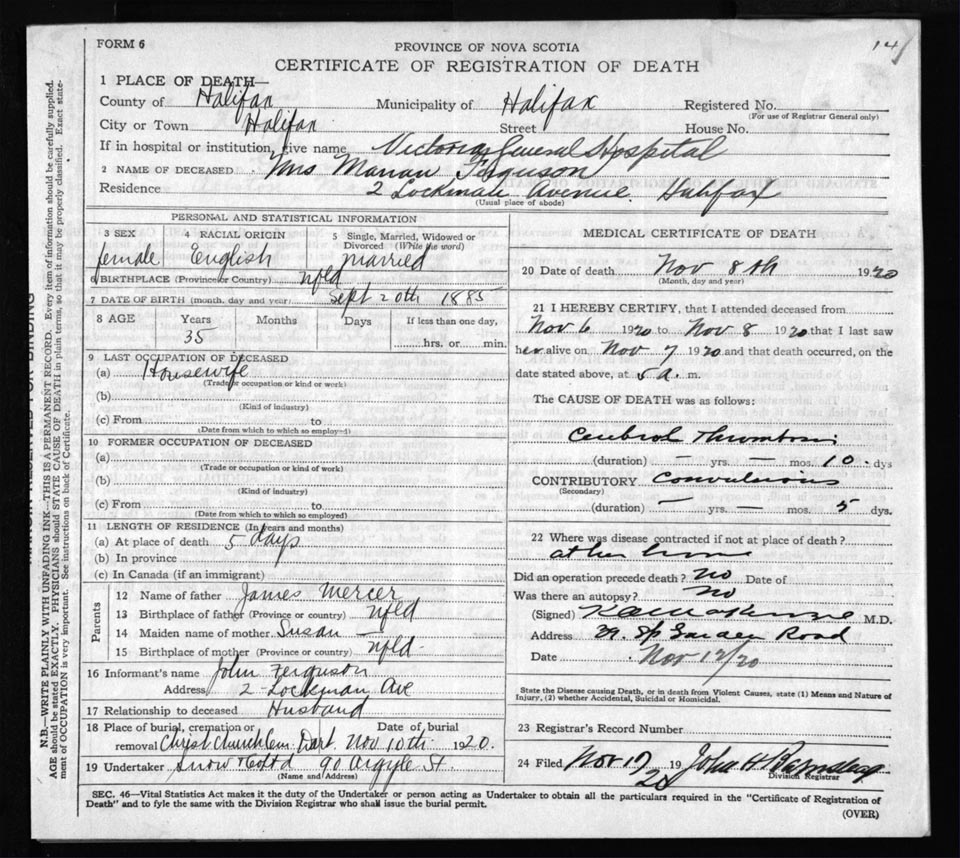 FORM 6
PROVINCE OF NOVA SCOTIA
14
CERTIFICATE OF REGISTRATION OF DEATH
1 PLACE OF DEATH—
County of Halifax Municipality of Halifax Registered No.
(For use of Registrar General only)
City or Town Halifax Street House No.
If in hospital or institution, give name Victoria General Hospital
2 NAME OF DECEASED Mrs Ferguson
Residence 2 Avenue Halifax
(Usual place of abode)
PERSONAL AND STATISTICAL INFORMATION
3 SEX 4 RACIAL ORIGIN 5 Single, Married, Widowed or Divorced (Write the word)
female English married
6 BIRTHPLACE (Province or Country) Nfld
7 DATE OF BIRTH (month, day and year) Sept 20th 1885
8 AGE Years Months Days If less than one day,
35 hrs. or min.
9 LAST OCCUPATION OF DECEASED
(a) Housewife
(Trade or occupation or kind or work)
(b)
(Kind of industry)
(c) From to
(Date from which to which so employed)
10 FORMER OCCUPATION OF DECEASED
(a)
(Trade or occupation or kind of work)
(b)
(Kind of industry)
(c) From to
(Date from which to which so employed)
11 LENGTH OF RESIDENCE (In years and months)
(a) At place of death 5 days
(b) In province
(c) In Canada (if an immigrant)
Parents
12 Name of father James Mercer
13 Birthplace of father (Province or country) Nfld
14 Maiden name of mother Susan —
15 Birthplace of mother (Province or country) Nfld
16 Informant's name John Ferguson
Address 2 Lockman Ave
17 Relationship to deceased Husband
18 Place of burial, cremation or Date of burial
removal Christ Church Cem Dart Nov 10th 1920.
19 Undertaker Snow & Co Ltd 90 Argyle St.
(Name and Address)
MEDICAL CERTIFICATE OF DEATH
20 Date of death Nov 8th 1920
(Month, day and year)
21 I HEREBY CERTIFY, that I attended deceased from
Nov 6 1920 to Nov 8 1920 that I last saw
her alive on Nov 7 1920 and that death occurred, on the
date stated above, at 5 a. m.
The CAUSE OF DEATH was as follows:
Cerebral Thrombosis
(duration) — yrs. — mos. 10 dys
CONTRIBUTORY Convulsions
(Secondary)
(duration) — yrs. — mos. 5 dys.
22 Where was disease contracted if not at place of death?
at her home
Did an operation precede death? No Date of
Was there an autopsy? No
(Signed) M.D.
Address Road
Date Nov 12/20
State the Disease causing Death, or in death from Violent Causes, state (1) Means and Nature of
Injury, (2) whether Accidental, Suicidal or Homicidal.
23 Registrar's Record Number
24 Filed Nov 19 John H
20
Division Registrar
SEC. 46—Vital Statistics Act makes it the duty of the Undertaker or person acting as Undertaker to obtain all the particulars required in the "Certificate of Registration of
Death" and to fyle the same with the Division Registrar who shall issue the burial permit.
(OVER)
N.B.—WRITE PLAINLY WITH UNFADING INK—THIS IS A PERMANENT RECORD. Every item of information should be carefully supplied.
AGE should be stated EXACTLY. PHYSICIANS should STATE CAUSE OF DEATH in plain terms, so that it may be properly classified. Exact state-
ment of OCCUPATION is very important. See instructions on back of Certificate.